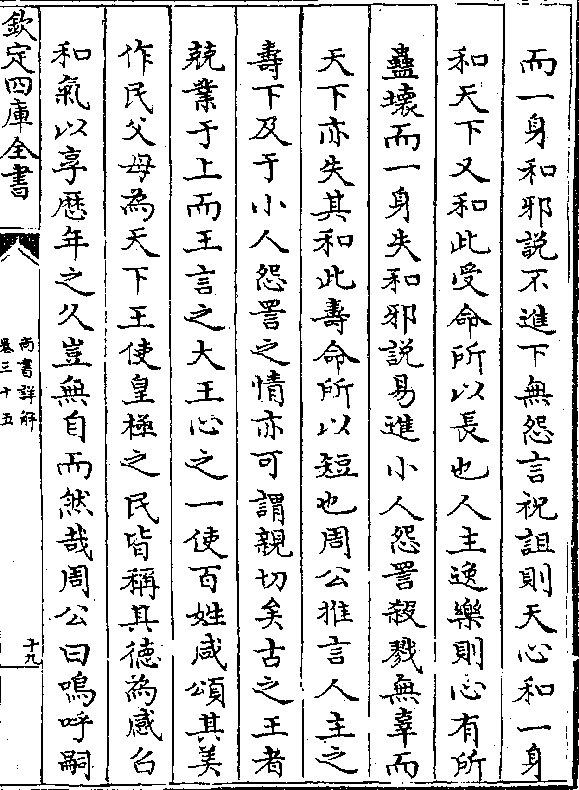 而一身和邪說不進下無怨言祝詛則天心和一身
和天下又和此受命所以長也人主逸樂則心有所
蠱壞而一身失和邪說易進小人怨詈殺戮無辜而
天下亦失其和此壽命所以短也周公推言人主之
壽下及于小人怨詈之情亦可謂親切矣古之王者
兢業于上而王言之大王心之一使百姓咸頌其美
作民父母為天下王使皇極之民皆稱其德為感召
和氣以享厯年之久豈無自而然哉周公曰嗚呼嗣
欽定四庫全書
尚書詳解
卷三十五
十九